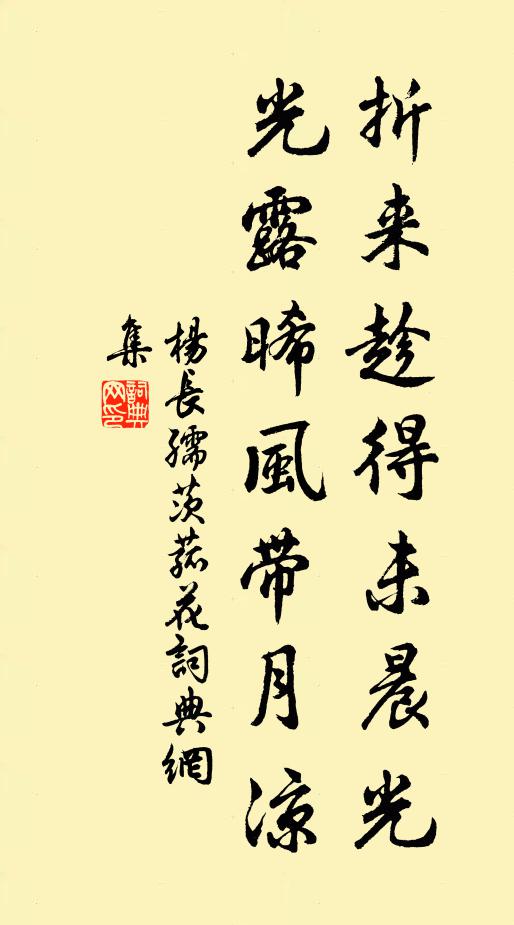 折来趁得未晨光
光露晞風带月涼
楊長孺茨菰花詞典網
集
詞典
网印